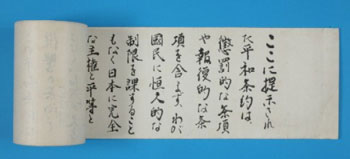 ここに提示され
た平和条約は
懲罰的な条項
や報復的な条
項を含まず、わが
國民に恒久的な
制限を課すること
もなく、日本に完全
な主権と平等と